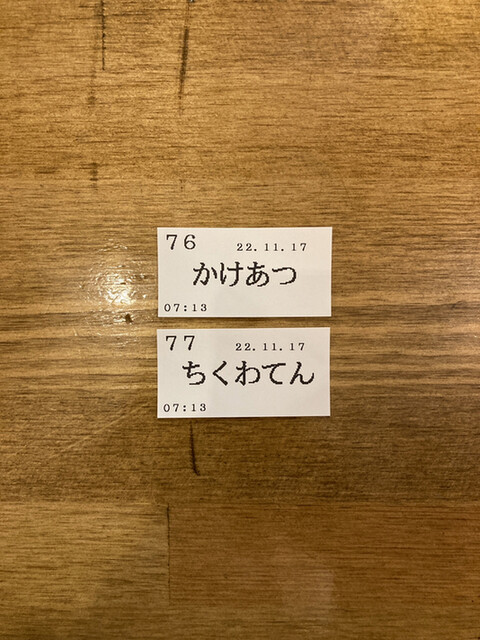 76 22.11.17
かけあつ
07:13
77 22.11.17
ちくわてん
07:13